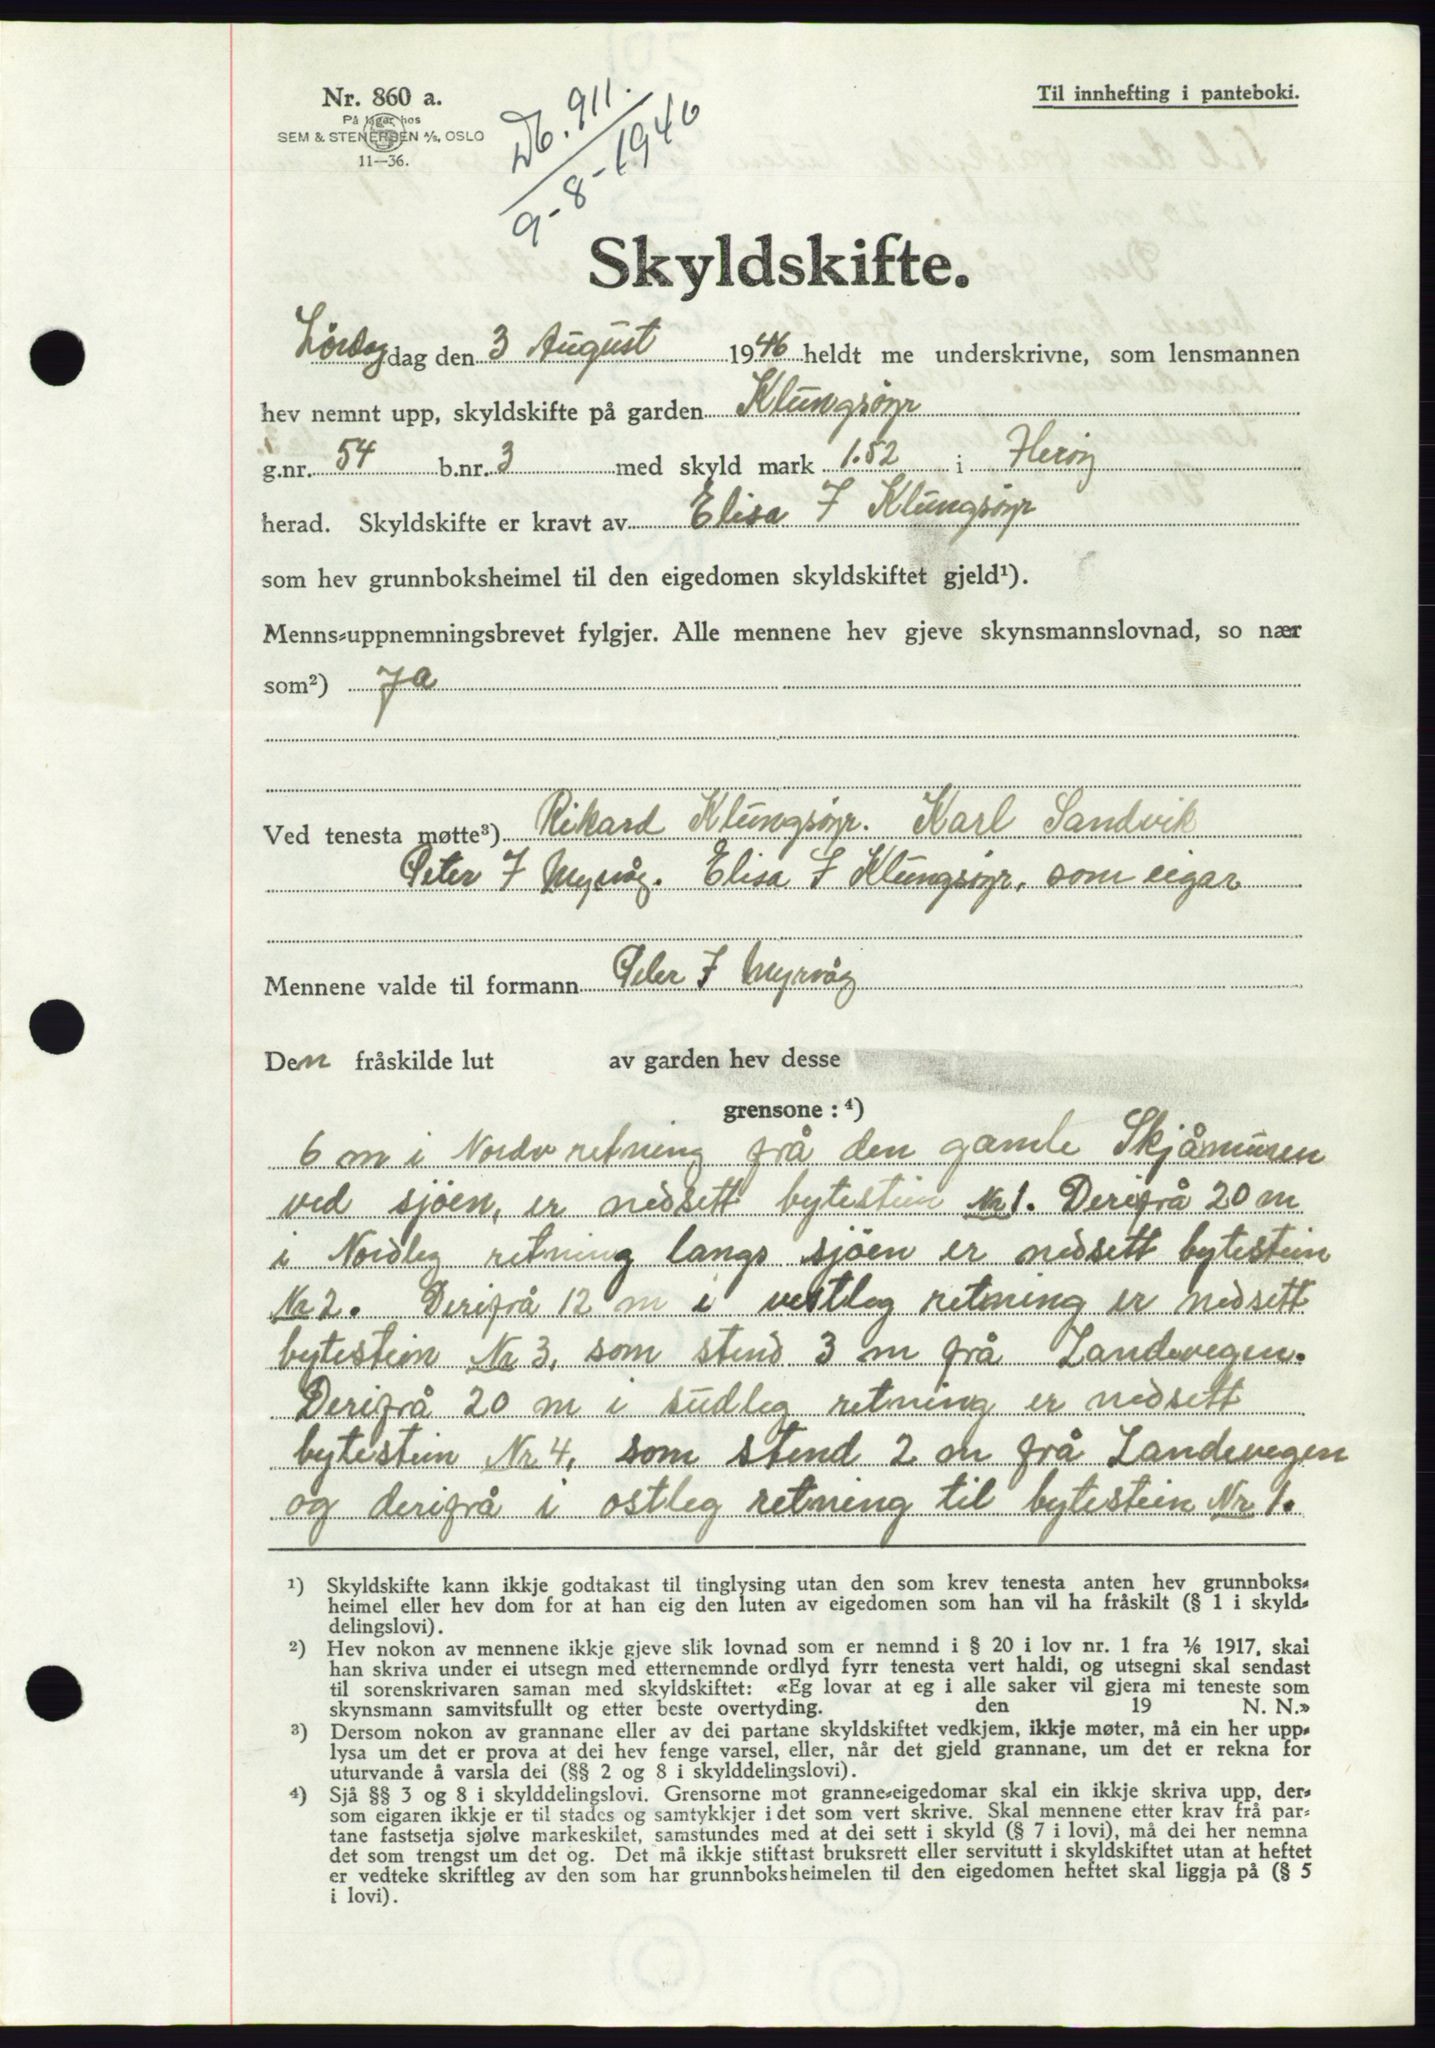 Nr. 860 a.
På lager hos
SEM & STENERSEN A/S, OSLO
11—36.
Til innhefting i panteboki.
Db. 911.
9-8-1946
Skyldskifte.
Lördag dag den 3 August 1946 heldt me underskrivne, som lensmannen
hev nemnt upp, skyldskifte på garden Klungsöyr
g.nr. 54 b.nr. 3 med skyld mark 1.52 i Heröy
herad. Skyldskifte er kravt av Elisa J Klungsöyr
som hev grunnboksheimel til den eigedomen skyldskiftet gjeld¹).
Menns-uppnemningsbrevet fylgjer. Alle mennene hev gjeve skynsmannslovnad, so nær
som²) Ja
Ved tenesta møtte³) Rikard Klungsöyr. Karl Sandvik
Peter J Myrvåg. Elisa J Klungsöyr, som eigar
Mennene valde til formann Peter J Myrvåg
Den fråskilde lut av garden hev desse
grensone : ⁴)
6 m i Nordv retning frå den gamle Skjåmuren
ved sjöen, er nedsett bytestein Nr 1. Derifrå 20 m
i Nordleg retning langs sjöen er nedsett bytestein
Nr 2. Derifrå 12 m i vestleg retning er nedsett
bytestein Nr 3, som stend 3 m frå Landevegen.
Derifrå 20 m i sudleg retning er nedsett
bytestein Nr 4, som stend 2 m frå Landevegen
og derifrå i ostleg retning til bytestein Nr 1.
¹) Skyldskifte kann ikkje godtakast til tinglysing utan den som krev tenesta anten hev grunnboks-
heimel eller hev dom for at han eig den luten av eigedomen som han vil ha fråskilt (§ 1 i skyld-
delingslovi).
²) Hev nokon av mennene ikkje gjeve slik lovnad som er nemnd i § 20 i lov nr. 1 fra 1/6 1917, skal
han skriva under ei utsegn med etternemnde ordlyd fyrr tenesta vert haldi, og utsegni skal sendast
til sorenskrivaren saman med skyldskiftet: «Eg lovar at eg i alle saker vil gjera mi teneste som
skynsmann samvitsfullt og etter beste overtyding. den 19 N. N.»
³) Dersom nokon av grannane eller av dei partane skyldskiftet vedkjem, ikkje møter, må ein her upp-
lysa um det er prova at dei hev fenge varsel, eller, når det gjeld grannane, um det er rekna for
uturvande å varsla dei (§§ 2 og 8 i skylddelingslovi).
⁴) Sjå §§ 3 og 8 i skylddelingslovi. Grensorne mot granne-eigedomar skal ein ikkje skriva upp, der-
som eigaren ikkje er til stades og samtykkjer i det som vert skrive. Skal mennene etter krav frå par-
tane fastsetja sjølve markeskilet, samstundes med at dei sett i skyld (§ 7 i lovi), må dei her nemna
det som trengst um det og. Det må ikkje stiftast bruksrett eller servitutt i skyldskiftet utan at heftet
er vedteke skriftleg av den som har grunnboksheimelen til den eigedomen heftet skal liggja på (§ 5
i lovi).